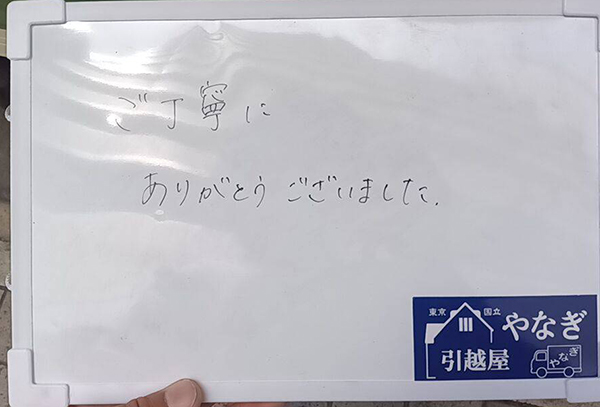 ご丁寧に
ありがとうございました.
東京 国立 やなぎ
引越屋 やなぎ